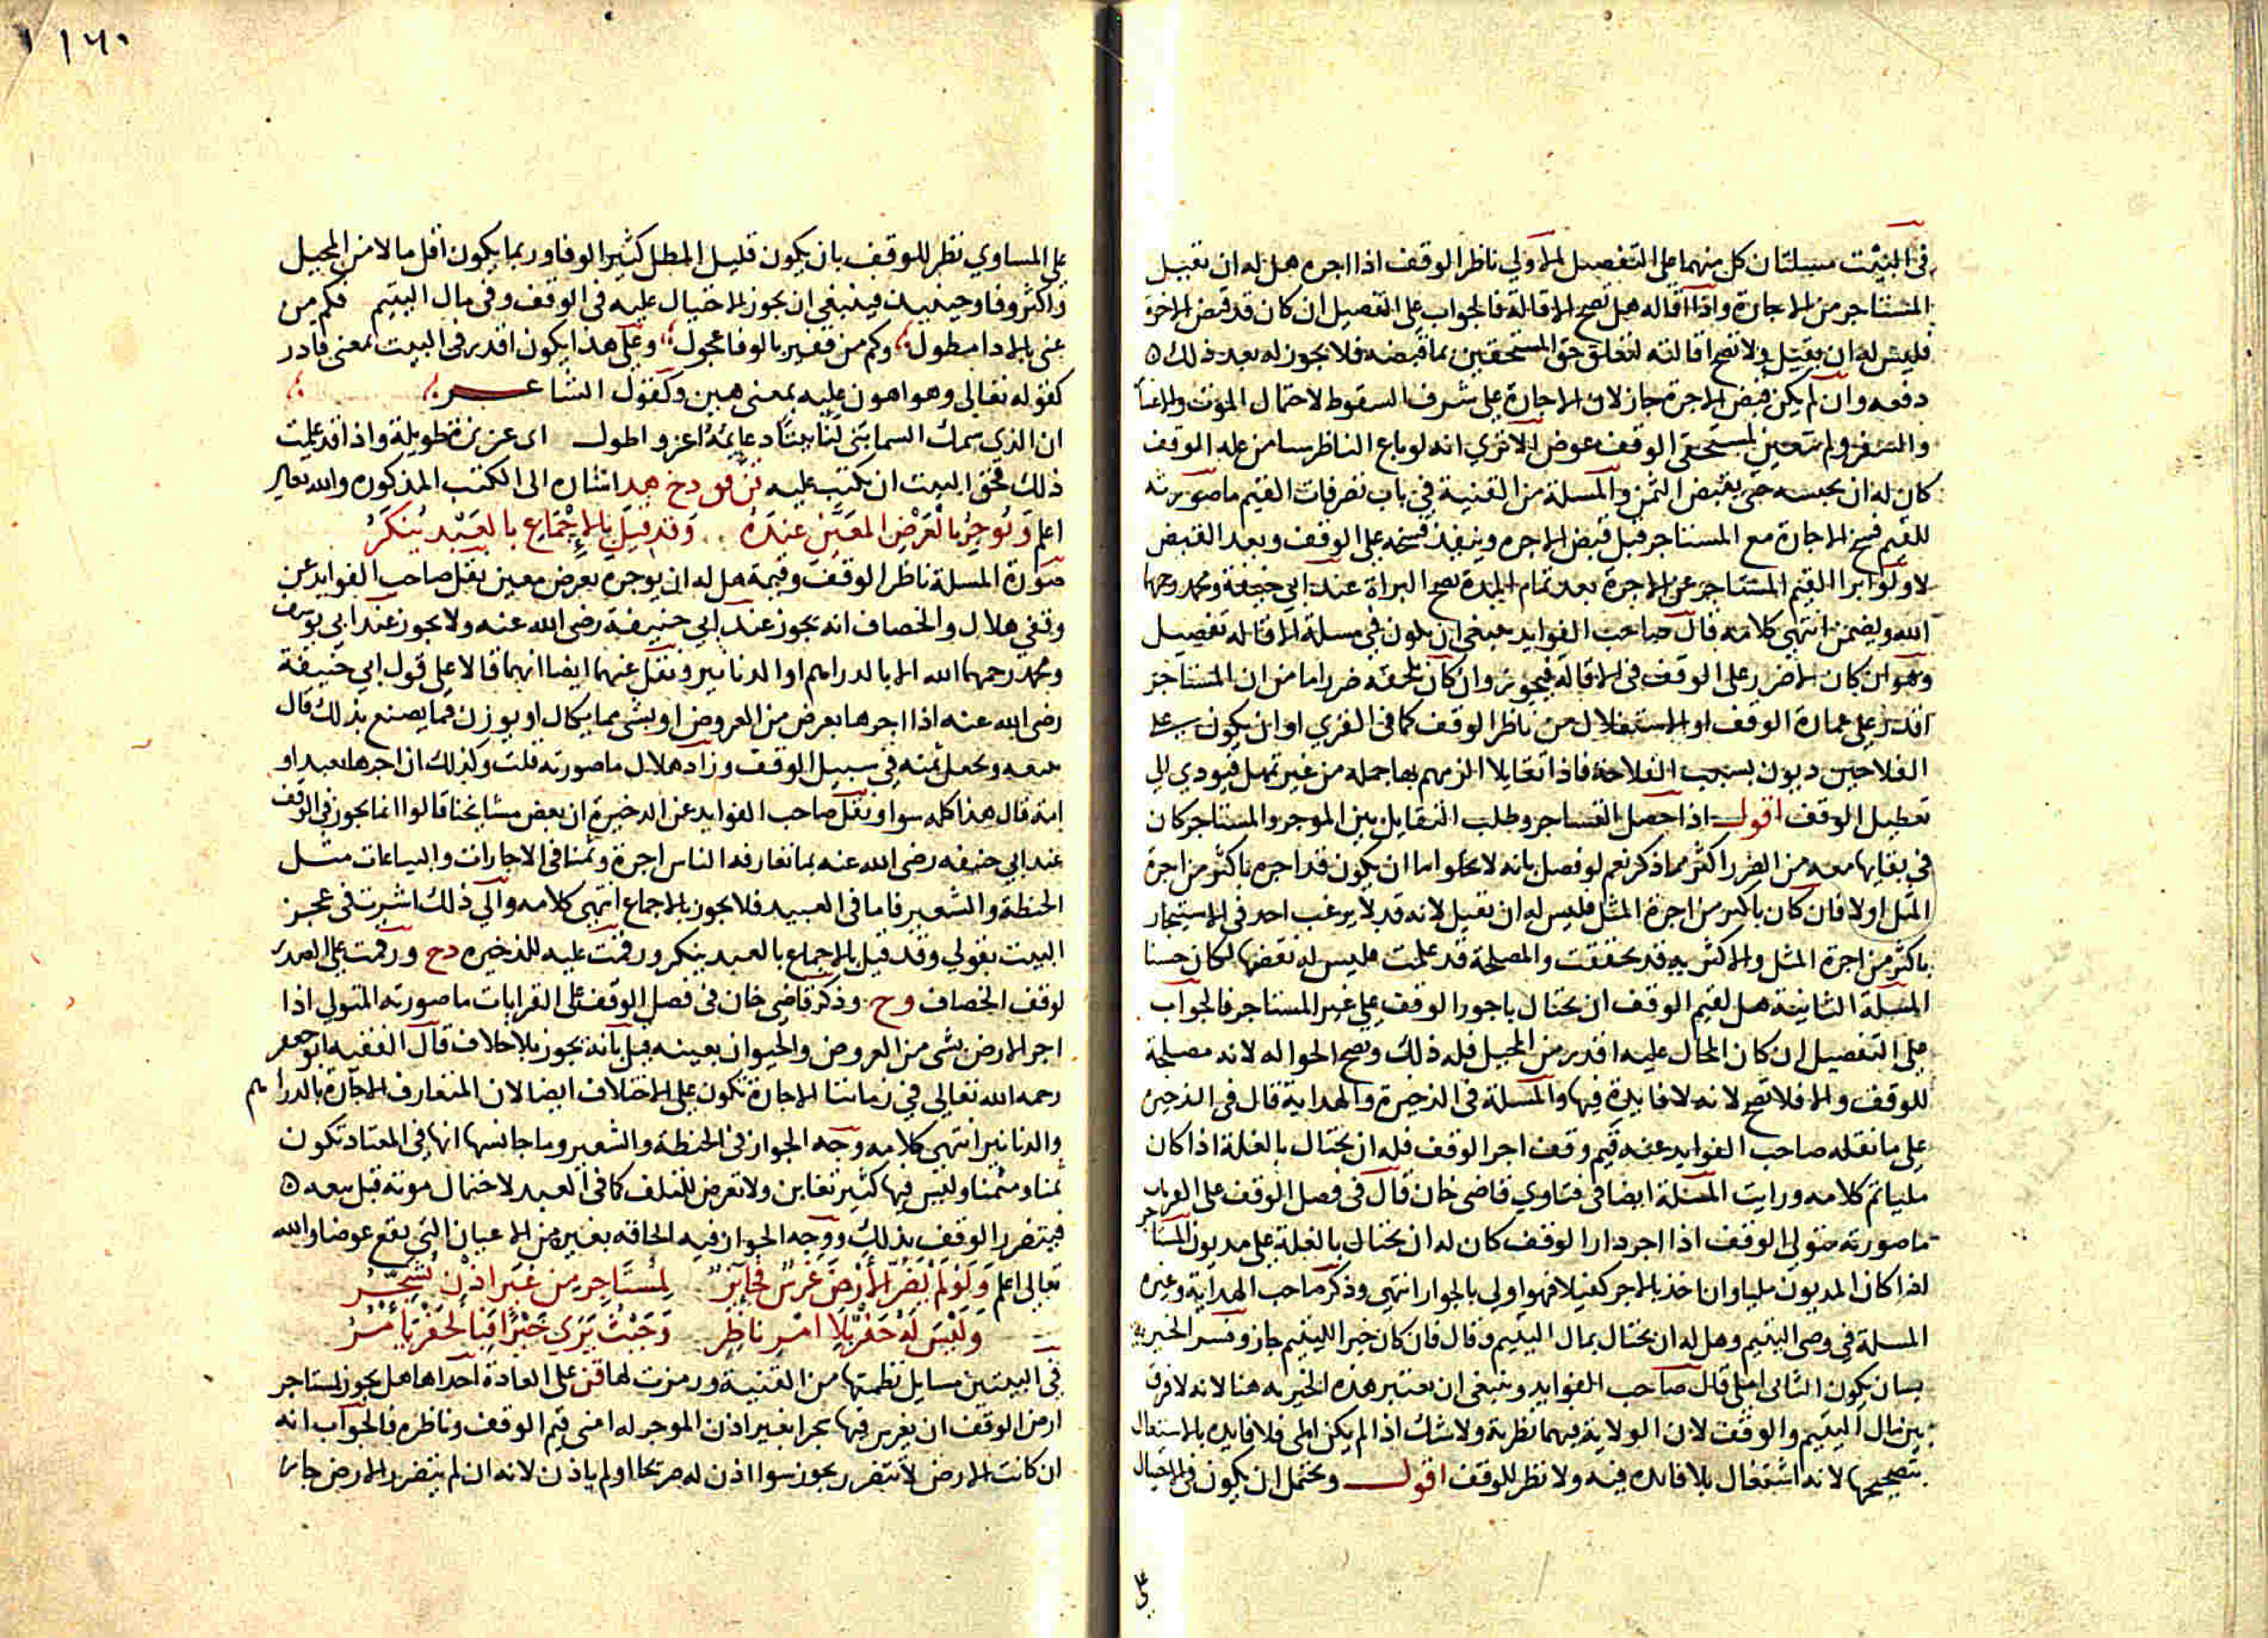 في البيت مسلتان كل منهما على التفصيل الاولي ناظر الوقف اذا اجره هل له ان تقيل
المستاجر من الاجارة واذا اقاله هل تصح الاقالة فالجواب على التفصيل ان كان قد قبض الاجرة
فليس له ان يقيل ولا تصح اقالته لتعلق حق المستحقين بما قبضه فلا يجوز له بعد ذلك
دفعه وان لم يكن قبض الاجرة جاز لان الاجارة على شرف السقوط لاحتمال الموت
والسفر ولم يتعين لمستحقى الوقف عوض الا ترى انه لو باع الناظر سيا من غلة الوقف
كان له ان يحبسه حتى يقبض الثمن والمسلة من القنية في باب تصرفات القيم ما صورته
للقيم فسخ الاجارة مع المستاجر قبل قبض الاجره وينفذ فسخه على الوقف وبعد القبض
لا ولو ابرا القيم المستاجر عن الاجرة بعد تمام المدة تصح البراة عند ابي حنيفة ومحمد رحمهما
الله ويضمن انتهى كلامه قال صاحب الفوايد ينبغي ان يكون في مسلة الاقالة تفصيل
وهو ان كان لا ضرر على الوقف في الاقالة فيجوز وان كان يلحقه ضرر اما من ان المستاجر
اقدر على عمارة الوقف او الاستغلال من ناظر الوقف كما في القري او ان يكون على
الفلاحين ديون بسبب الفلاحة فاذا تقايلا الزمهم بها جملة من غير تمهل فيودي الي
تعطيل الوقف اقول اذا حصل التشاجر وطلب التقايل بين الموجر والمستاجر كان
في بقايها معه من الضرر اكثر مما ذكر نعم لو فصل بانه لا يخلوا اما ان يكون قد اجره باكثر من اجرة
المثل اولا فان كان باكثر من اجرة المثل فليس له ان تقيل لانه قد لا يرغب احد في الاستيجار
باكثر من اجرة المثل والاكثرية قد تحققت والمصلحة قد علمت فليس له نقضها لكان حسنا
المسلة الثانية هل لقيم الوقف ان يحتال باجور الوقف على غير المستاجر فالجواب
على التفصيل ان كان المحال عليه اقدر من المحيل فله ذلك وتصح الحواله لانه مصلحة
للوقف والا فلا تصح لانه لا فايدة فيها والمسلة في الذخيرة والهداية قال في الذخيرة
على ما نقله صاحب الفوايد عنه قيم وقف اجر الوقف فله ان يحتال بالغلة اذا كان
مليا تم كلامه ورايت المسلة ايضا في فتاوي قاضي خان قال في فصل الوقف على القرابات
ما صورته متولي الوقف اذا اجر دار الوقف كان له ان يحتال بالغلة على مديون المستاجر
اذا كان المديون مليا وان اخذ بالاجر كفيلا فهو اولي بالجواز انتهى وذكر صاحب الهداية وغيره
المسلة في وصى اليتيم وهل له ان يحتال بمال اليتيم وقال فان كان خيرا لليتيم جاز وفسر الخيرية
بان يكون الثاني املى قال صاحب الفوايد وينبغي ان تعتبر هذه الخيرية هنا لانه لا فرق
بين مال اليتيم والوقف لان الولاية فيهما نظرية ولا شك اذا لم يكن املى فلا فايدة بالاشتغال
بتصحيحها لانه اشتغال بلا فايدة فيه ولا نظر للوقف اقول ويحتمل ان يكون في الاحتيال
على
على المساوي نظر للوقف بان يكون قليل المطل كثير الوفا وربما يكون اقل مالا من المحيل
واكثر وفا وحينيذ فينبغي ان يجوز الاحتيال عليه في الوقف وفي مال اليتيم فكم من
غني بالادا مطول وكم من فقير بالوفا عجول وعلى هذا يكون اقدر في البيت بمعنى قادر
كقوله تعالى وهو اهون عليه بمعنى هين وكقول الشاعر
ان الذي سمك السما بنى لنا بيتا دعايمه اعز واطول اى عزيزة طويلة واذا قد علمت
ذلك فحق البيت ان يكتب عليه قن فو دخ هد اشارة الى الكتب المذكوره والله تعالى
اعلم وَيُوجِرُ بِالعَرْضِ المعَيَّن عندَهُ وَقد قِيلَ بالاِجْمَاعِ بالعَبْدِ يُنكَرُ
صورة المسلة ناظر الوقف وقيمه هل له ان يوجره بعرض معين نقل صاحب الفوايد عن
وقفي هلال والخصاف انه يجوز عند ابي حنيفة رضى الله عنه ولا يجوز عند ابي يوسف
ومحمد رحمهما الله الا بالدراهم او الدنانير ونقل عنهما ايضا انهما قالا على قول ابي حنيفة
رضى الله عنه اذا اجرها بعرض من العروض او بشى مما يكال او يوزن فما يصنع بذلك قال
يبيعه ويجعل ثمنه في سبيل الوقف وزاد هلال ما صورته قلت وكذلك ان اجرها بعبد او
امة قال هذا كله سوا ونقل صاحب الفوايد عن الذخيرة ان بعض مشايخنا قالوا انما يجوز في الوقف
عند ابي حنيفه رضى الله عنه بما تعارفه الناس اجرة وثمنا في الاجارات والبياعات مثل
الحنطة والشعير فاما في العبيد فلا يجوز بالاجماع انتهى كلامه والى ذلك اشرت في عجز
البيت بقولي وقد قيل بالاجماع بالعبد ينكر ورقمت عليه للذخيره دخ ورقمت على الصدر
لوقف الخصاف وخ وذكر قاضي خان في فصل الوقف على القرابات ما صورته المتولي اذا
اجر الارض بشى من العروض والحيوان بعينه قيل بانه يجوز بلا خلاف قال الفقيه ابو جعفر
رحمه الله تعالى في زماننا الاجارة تكون على الاختلاف ايضا لان المتعارف الاجارة بالدراهم
والدنانير انتهى كلامه وجه الجواز في الحنطة والشعير وما جانسها انها في المعتاد تكون
ثمنا ومثمنا وليس فيها كثير تغابن ولا تعرض للتلف كما في العبد لاحتمال موته قبل بيعه
فيتضرر الوقف بذلك ووجه الجواز فيه الحاقه بغيره من الاعيان التي يقع عوضا والله
تعالى اعلم وَلَوْ لَمْ يَضُرّ الأَرْضَ غَرْسٌ فَجَايزٌ لِمُستَاجِرٍ مِن غَيرِ اذْنٍ يُشَجِّرُ
وَلَيْسَ لَهُ حَفْرٌ بِلَا امْرِ نَاظِرٍ وَحَيْثُ يَرَي خَيْرًا فَبِالحَفْرِ يَأمُرُ
في البيتين مسايل نظمتها من القنية ورمزت لها قن على العادة احداها هل يجوز لمستاجر
ارض الوقف ان يغرس فيها شجرا بغير اذن الموجر له اعنى قيم الوقف وناظره فالجواب انه
ان كانت الارض لا تتضرر يجوز سوا اذن له صريحا او لم ياذن لانه ان لم يتضرر الارض جاز
١٦٠